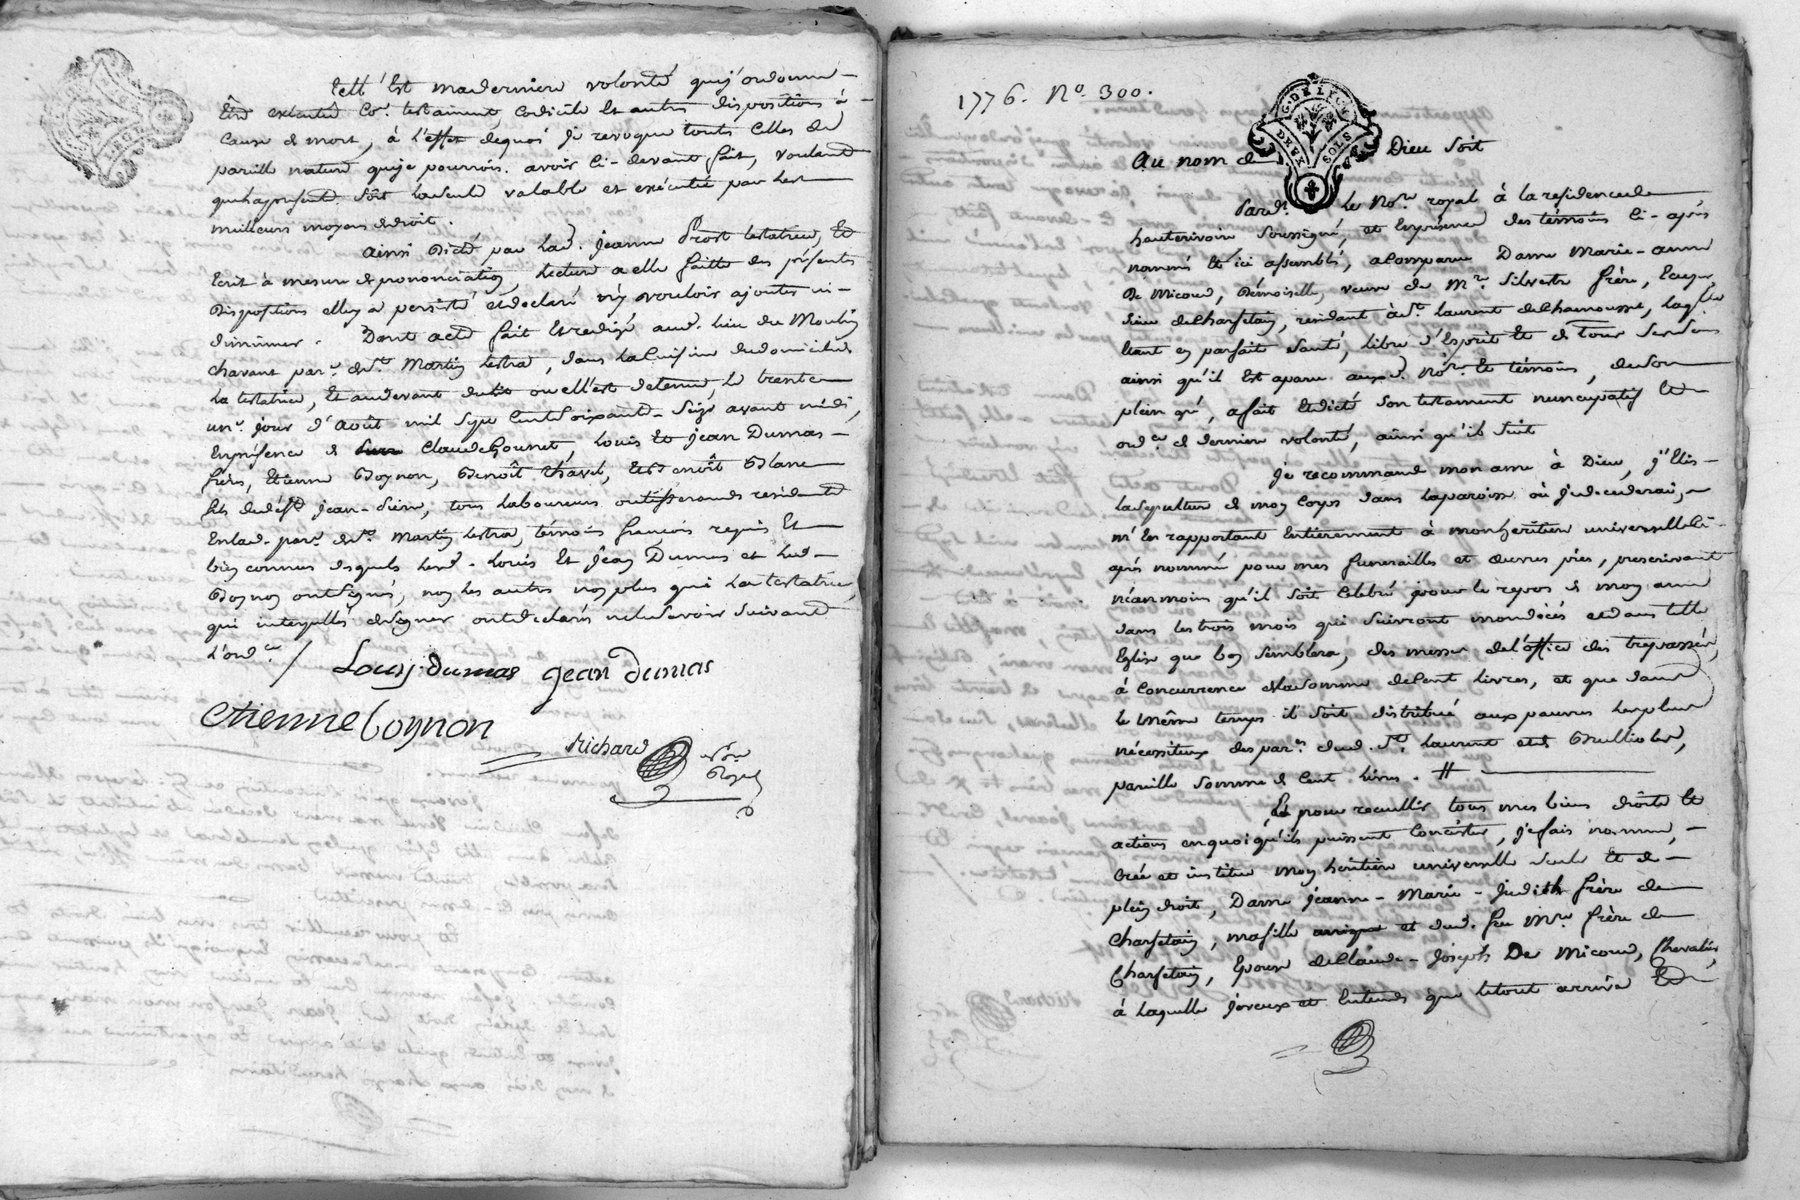 telle Est maderniere volonté quej'ordonne
Etre executée Co.e testament codicile Et autres dispositions à
Cause de mort, à l'effet dequoi Je revoque toute Celles de
pareille nature queje pourrois avoir Ci-devant fait, voulant
quelaprésente soit laseule valable et exécutée par les
meilleurs moyens dedroit.
ainsi Dicté par lad. Jeanne Prost testatrice, Et
Ecrit à mesure deprononciation lecture a elle faitte des présentes
Dispositions elley a persisté et declaré n'y vouloir ajouter ni
diminuer. Dont acte fait Et redigé aud. lieu du Moulin
charant par.e de St. Martin lestra, dans la Cuisine dudomicile de
la testatrice, Et audevant dulit ou ell'est detenue, le trente
un.e jour d'août mil Sept Cent Soixante-Seize avant midi,
Enprésence de Claude Gounet, Louis Et jean Dumas
frères, Etienne Boynon, Benoît thavel, Et Benoît Blanc
fils de déft. jean-, tous laboureurs outisserands residents
En lad. par.e de St. Martin lestra, témoins requis Et
bien connus desquels lesd. Louis Et Jean Dumas et led.
Boynon ont Signés, non les autres non plus que la testatrice,
qui interpellés designer ont declarés nele Savoir Suivant
l'ord.ce /
Louis dumas jean dumas
etienne boynon
Richard no.re Royal
1776. N.o 300.
G. DE LYON
DEUX SOLS
Au nom de Dieu soit
Pard.t Le No.re royal à la residence de
hauterivoire Soussigné, et Enprésence des témoins Ci-après
nommés Et ici assemblés, a Comparu Dame Marie-anne
De Micoud, Démoiselle, veuve de M.re Silvestre frère, Ecuyer,
Sieur deCharfetain, residant à St. laurent deChamousset, laq.lle
Etant en parfaite Santé, libre d'Esprit Et de tous Ses Sens
ainsi qu'il Est aparu auxd. No.re Et témoins, de Son
plein gré, a fait Et dicté Son testament nuncupatif Et
ord.ce de derniere volonté, ainsi qu'il Suit
Je recommande mon ame à Dieu, j'Elis
la Sepulture de mon Corps dans laparoisse où je decederai,
m'En rapportant Entierement à monheritiere universelle Ci-
après nommée pour mes funerailles et œuvres pies, prescrivant
néanmoins qu'il Soit Celebré pour le repos de mon ame
dans les trois mois qui Suivront mondécès et dans telle
Eglise que bon Semblera, des messes de l'office des trepassés,
à Concurrence de la Somme de Cent livres, et que dans
le même temps il Soit distribué aux pauvres les plus
nécessiteux des par.es dud. St. laurent et de Brullioles,
pareille Somme de Cent livres. #
Et pour recueillir tous mes biens droits Et
actions en quoi qu'ils puissent Concister, je fais nomme,
Crée et institue mon heritiere universelle Seule Et de
plein droit, Dame jeanne-Marie-judith frère de
Charfetain, ma fille et dud. feu M.re frère de
Charfetain, Epouse de Claude-Joseph De Micoud, Chevalier,
à laquelle je veux et Entends que le tout arrive Et